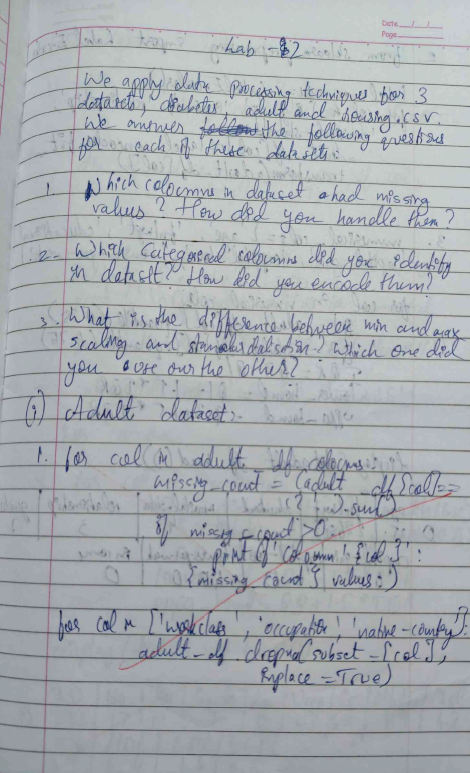 Date / /
Page
Lab - 2
We apply data processing techniques for 3
datasets, diabetes, adult and housing.csv.
We answer the following questions
for each of these datasets:
1. Which coloumns in dataset had missing
values? How did you handle them?
2- Which Categorical coloumns did you identify
in dataset? How did you encode them?
3. What is the difference between min and max
scaling and standardisation? Which one did
you use over the other?
(i) Adult dataset:-
1. for col in adult_df.coloumns:
missing_count = (adult_df[col]==
'?').sum()
if missing_count >0:
print(f'coloumn '{col}':
{missing count} values:')
for col in ['workclass', 'occupation', 'native-country']:
adult_df.dropna(subset=[col],
inplace=True)